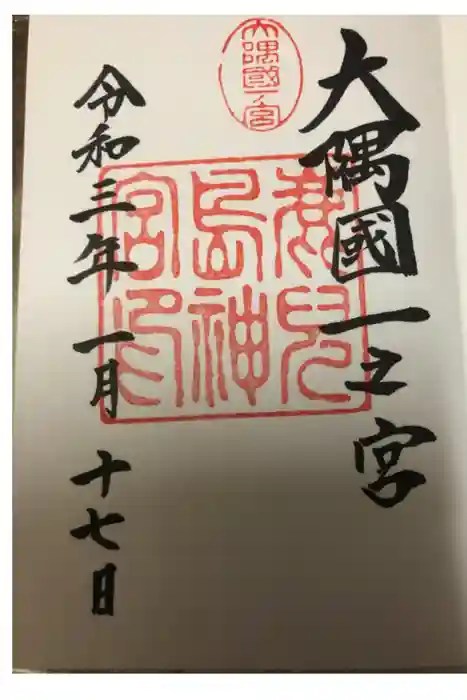 大隅國一之宮
大隅國一ノ宮
鹿兒島神宮印
令和三年一月十七日